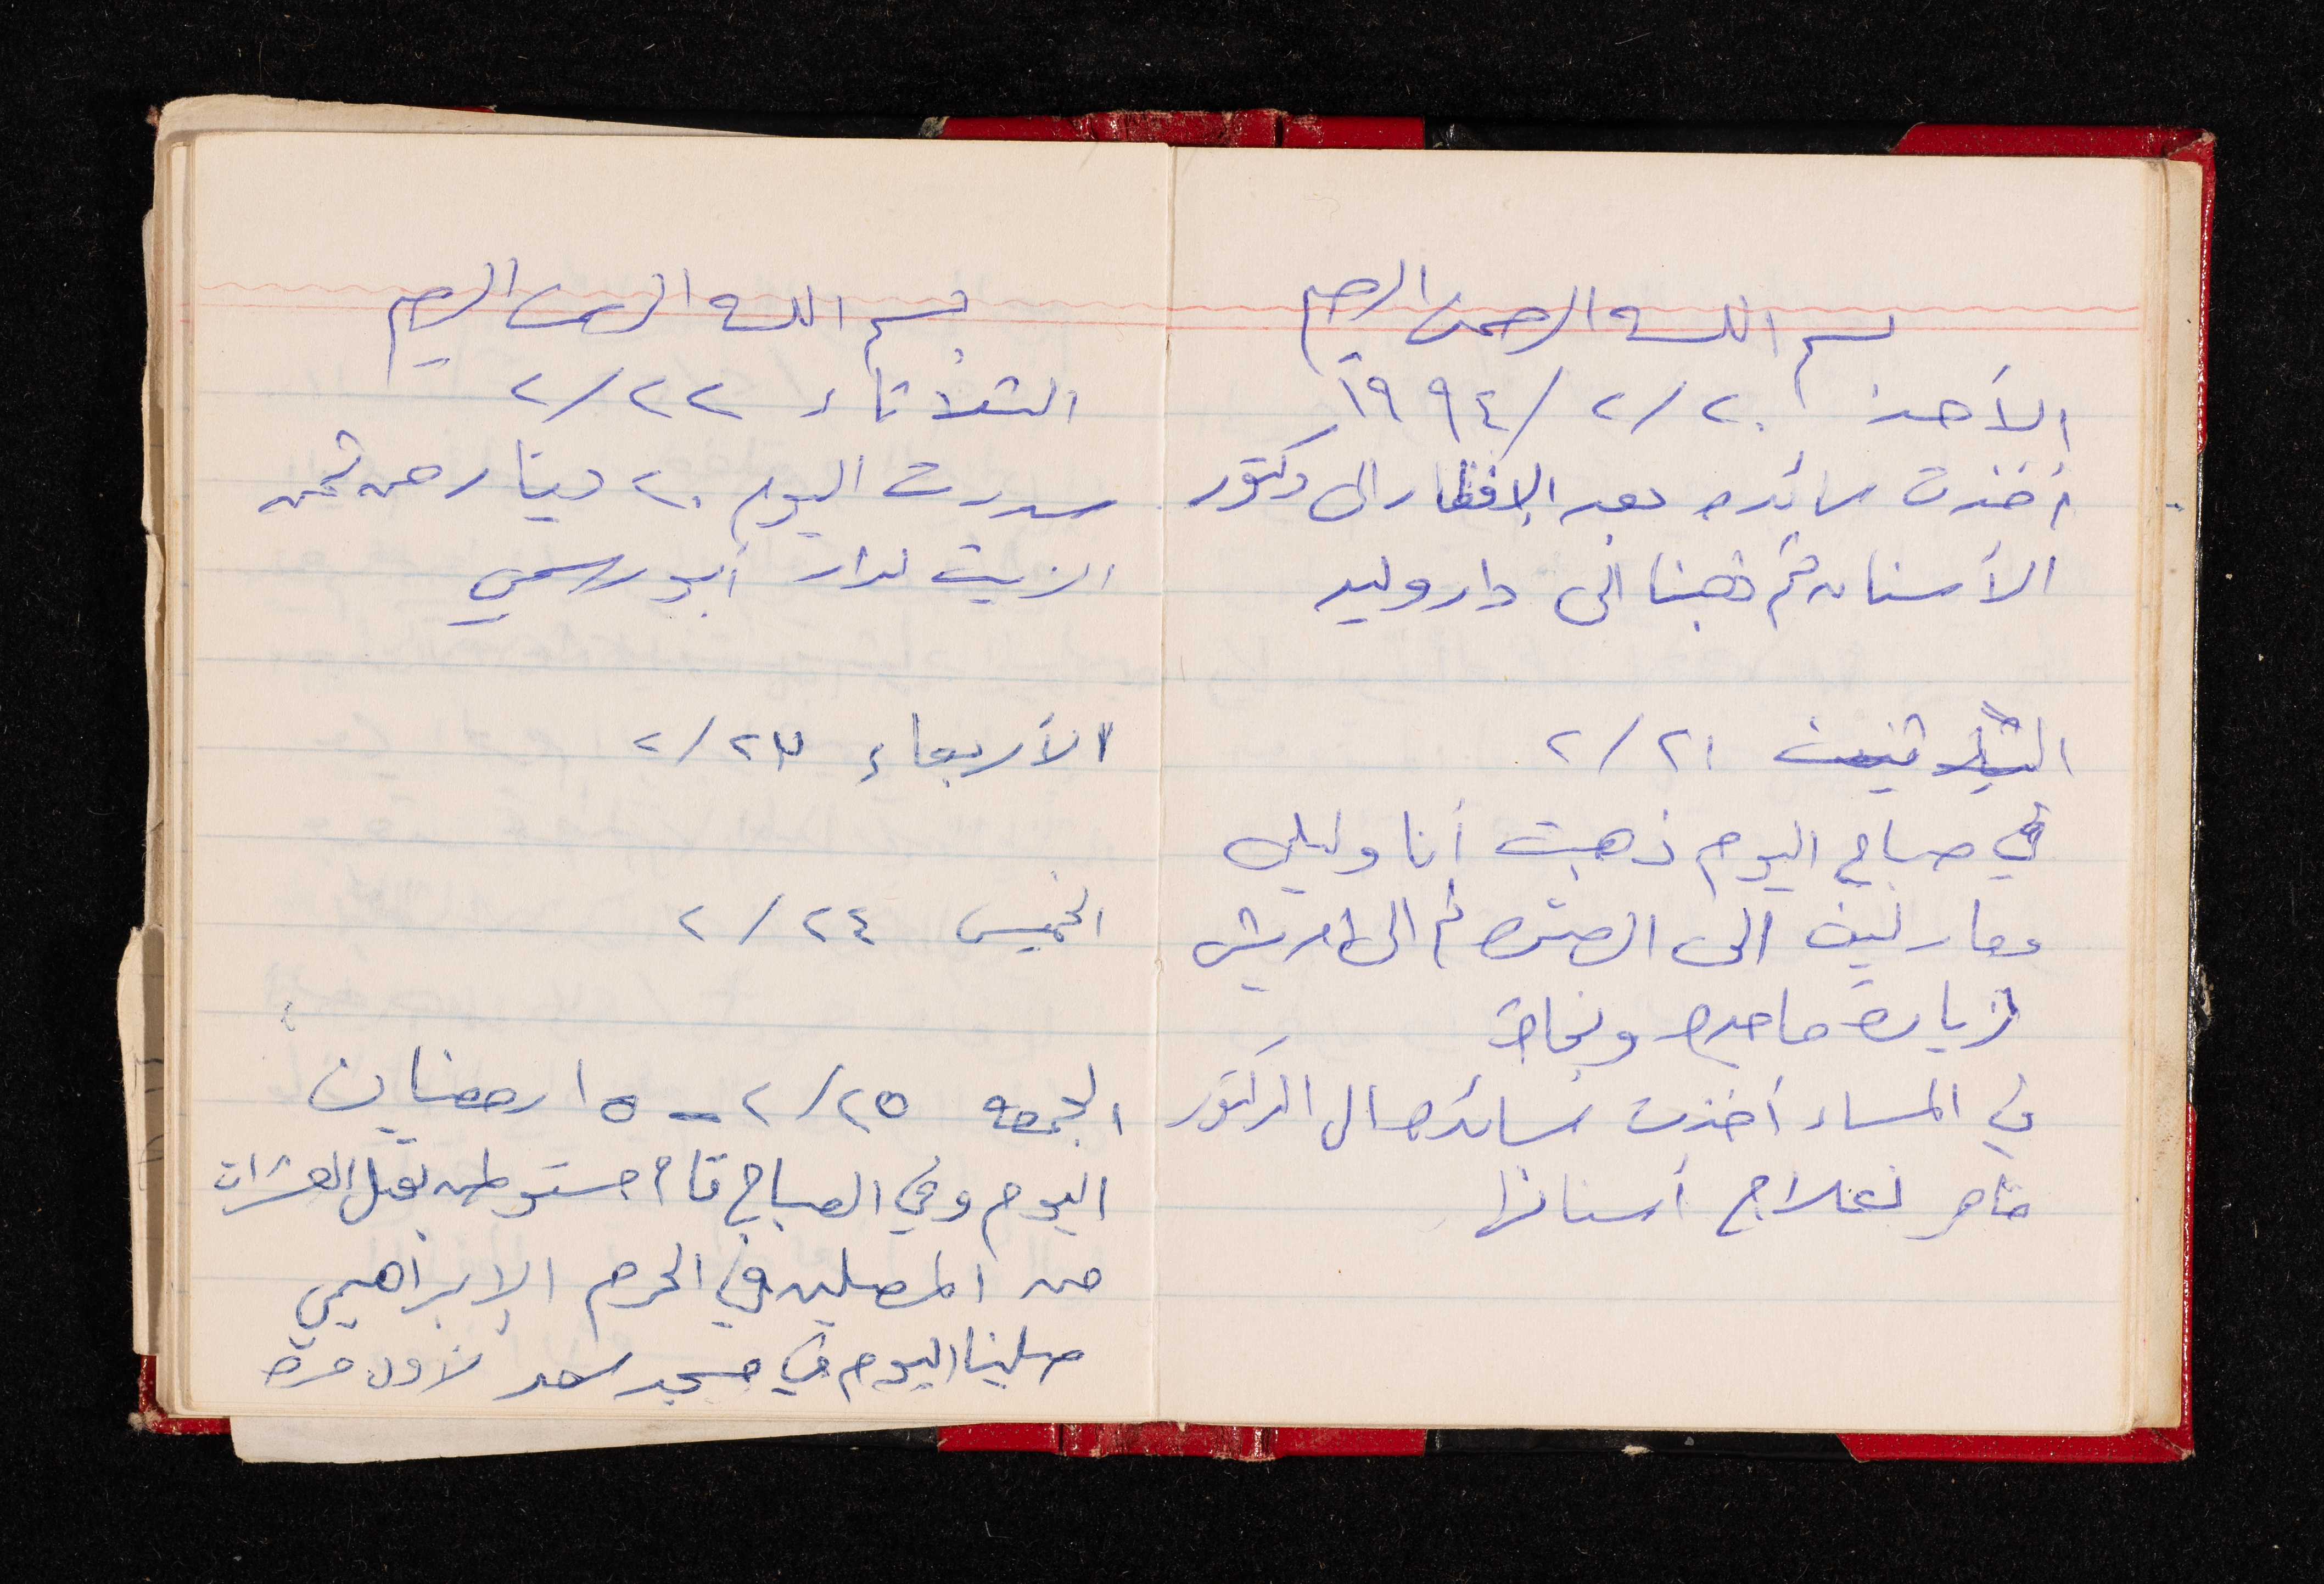 بسم الله الرحمن الرحيم
الأحد ٢٠/٢/١٩٩٤
أخذت سائده بعد الإفطار الى دكتور
الأسنان ثم ذهبنا الى دار وليد
٢/٢١
في صباح اليوم ذهبت أنا وليلى
الى ثم الى
لزيارة ماجده ونجاة
في المساء أخذت سائده الى الدكتور
ماهر لعلاج أسنانها
بسم الله الرحمن الرحيم
الثلاثاء ٢/٢٢
سددت اليوم ٢٠ دينار من ثمن
الزيت لدار أبو رسمي
الأربعاء ٢/٢٣
الخميس ٢/٢٤
الجمعه ٢/٢٥ - ١٥ رمضان
اليوم وفي الصباح قام مستوطن بقتل العشرات
من المصلين في الحرم الإبراهيمي
صلينا اليوم في مسجد سعد لأول مره